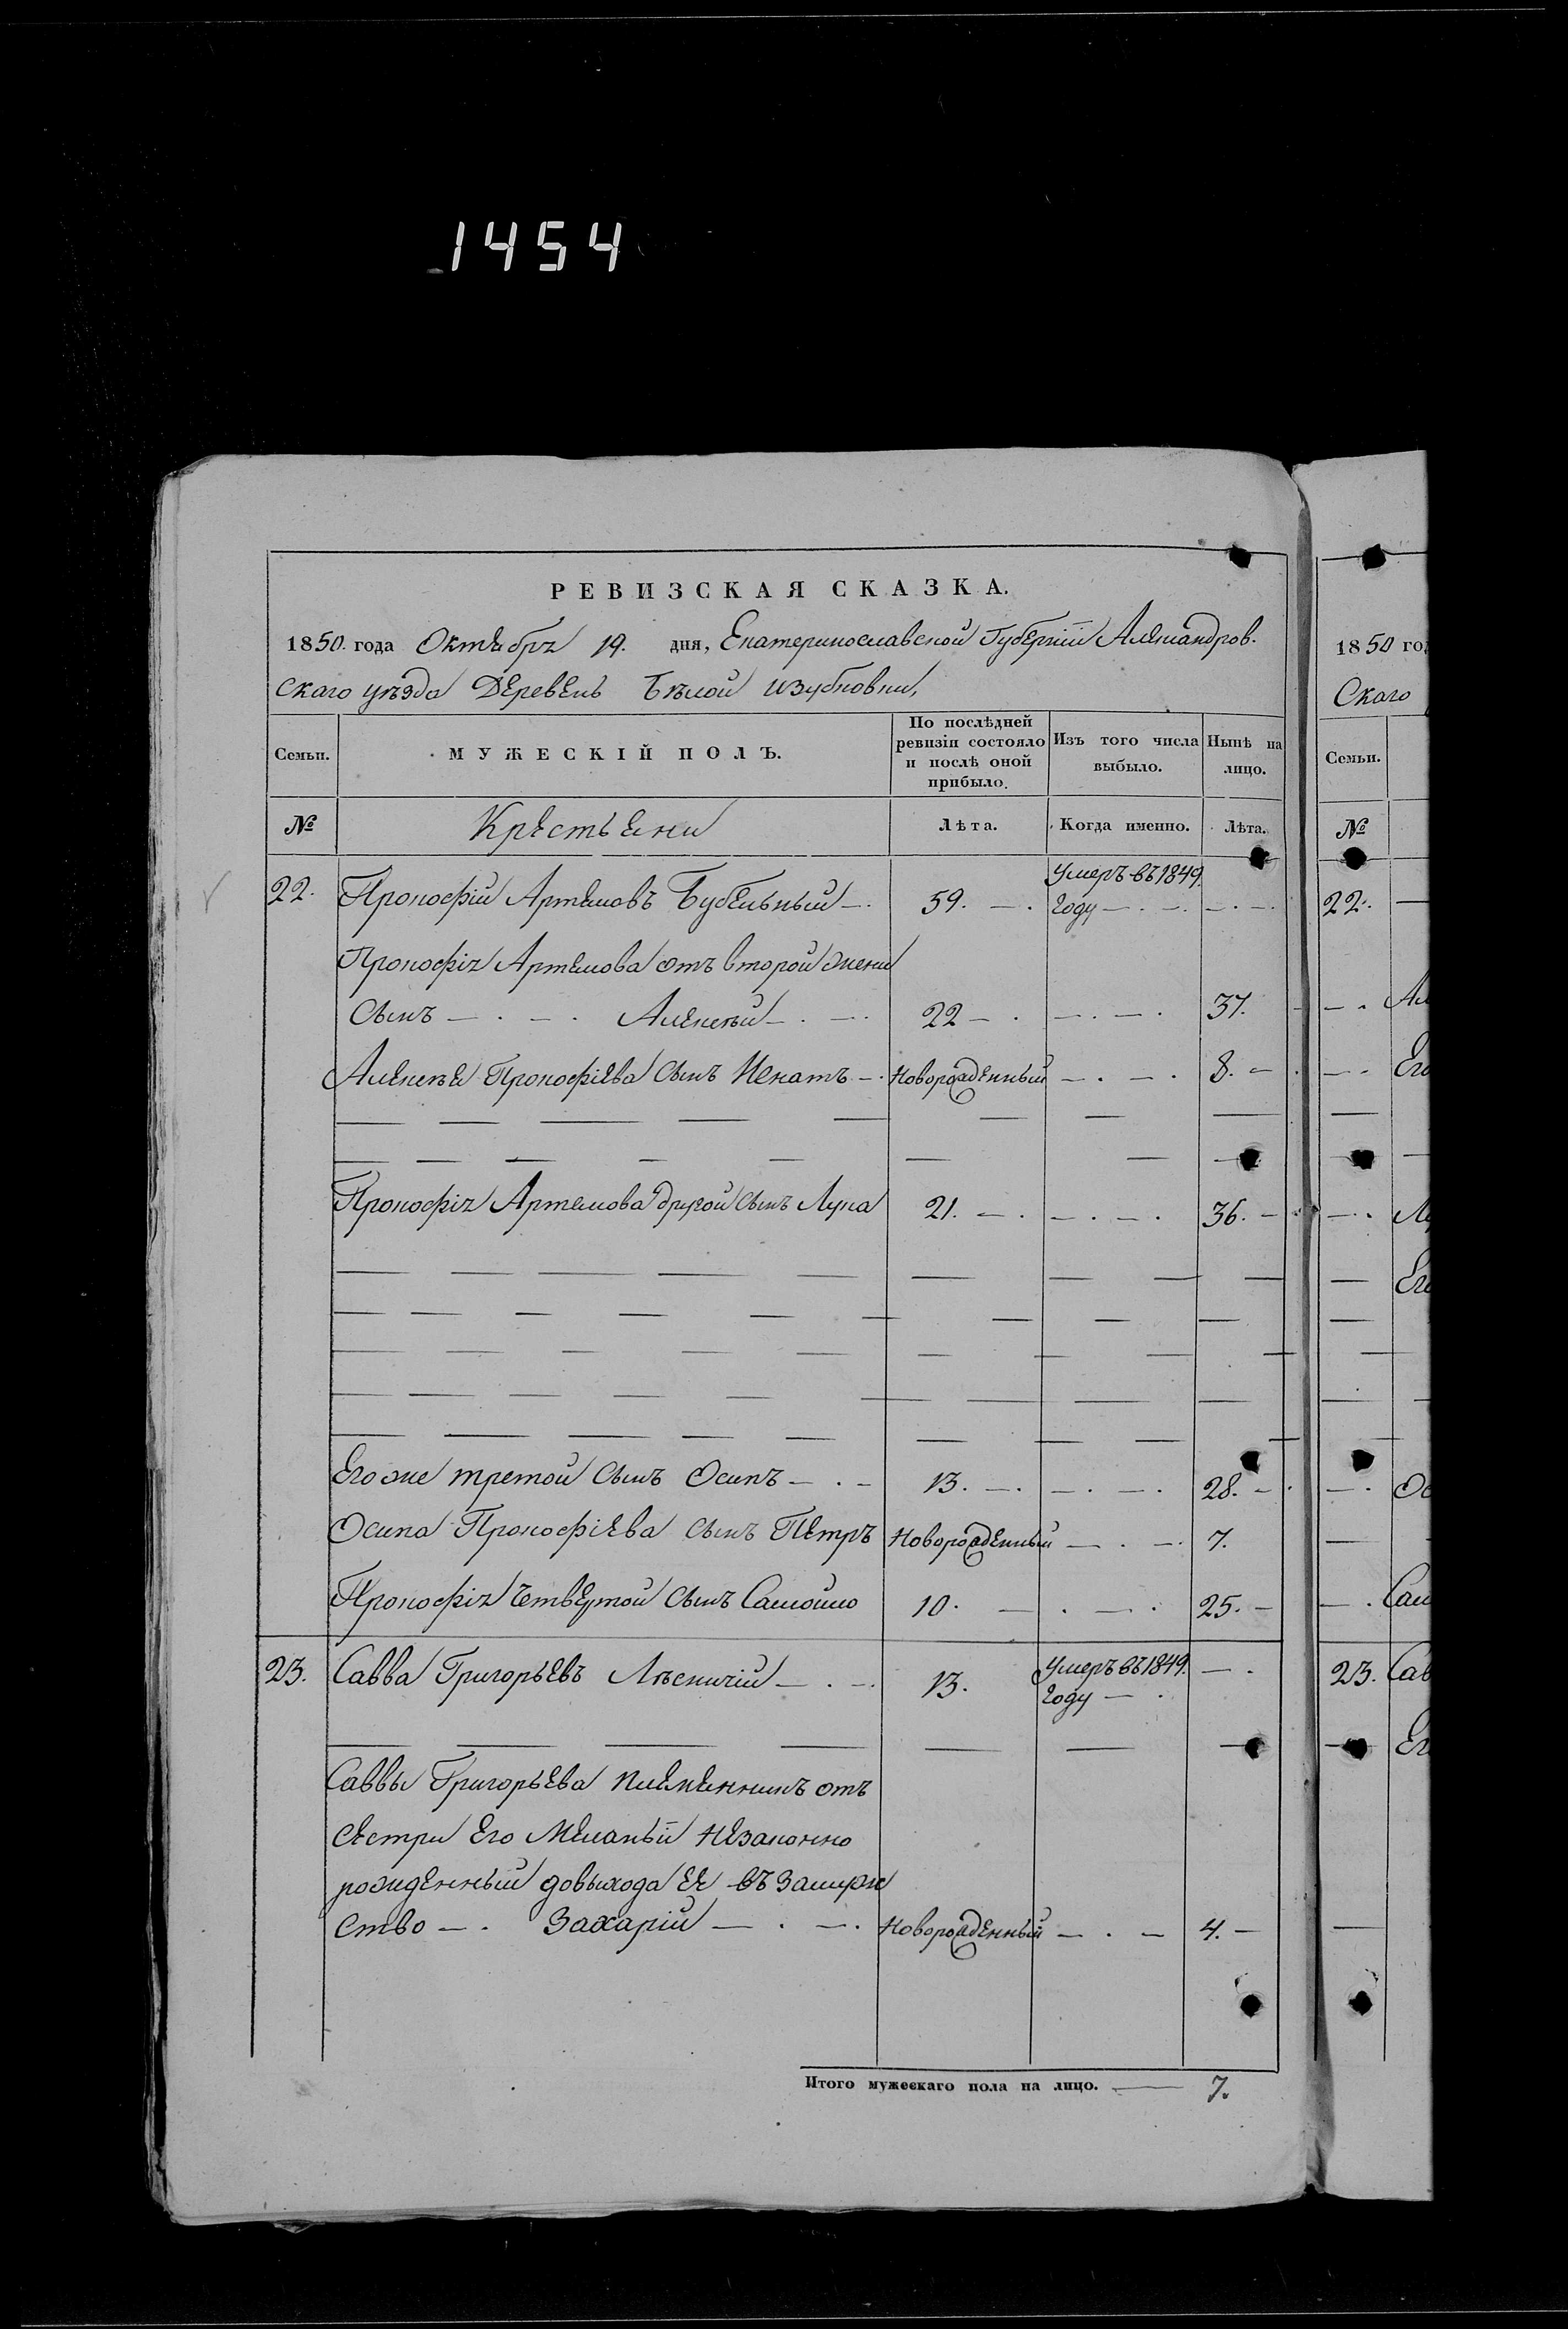 1454
РЕВИЗСКАЯ СКАЗКА.
1850. года Октября 19. дня, Екатеринославской Губерніи Александров.
скаго уѣзда Деревень Бѣлой
Семьи.
МУЖЕСКІЙ ПОЛЪ.
По послѣдней ревизіи состояло и послѣ оной прибыло.
Изъ того числа выбыло.
Нынѣ на лицо.
№
Крестьяни
Лѣта.
Когда именно.
Лѣта.
22. Прокофій Артемовъ Бубельный 59. Умеръ въ 1849. году
Прокофія Артемова отъ второй жени
сынъ Алексѣй 22 37.
Алексѣя Прокофіева сынъ Игнатъ Новорожденный 8.
Прокофія Артемова другой сынъ Лука 21. 36.
Его же третой сынъ Осипъ 13. 28.
Осипа Прокофіева сынъ Петръ Новорожденный 7.
Прокофія четвертой сынъ Самойло 10. 25.
23. Савва Григорьевъ Лѣсничій 13. Умеръ въ 1849. году
Саввы Григорьева племенникъ отъ
сестри Его Меланьи незаконно
рожденный до выхода Ея въ замуже
ство Захарій Новорожденный 4.
Итого мужескаго пола на лицо. 7.
1850 го
Скаго
Семьи.
№
22.
Ал
Его
Лу
Его
Ос
Сам
23. Сав
Ег